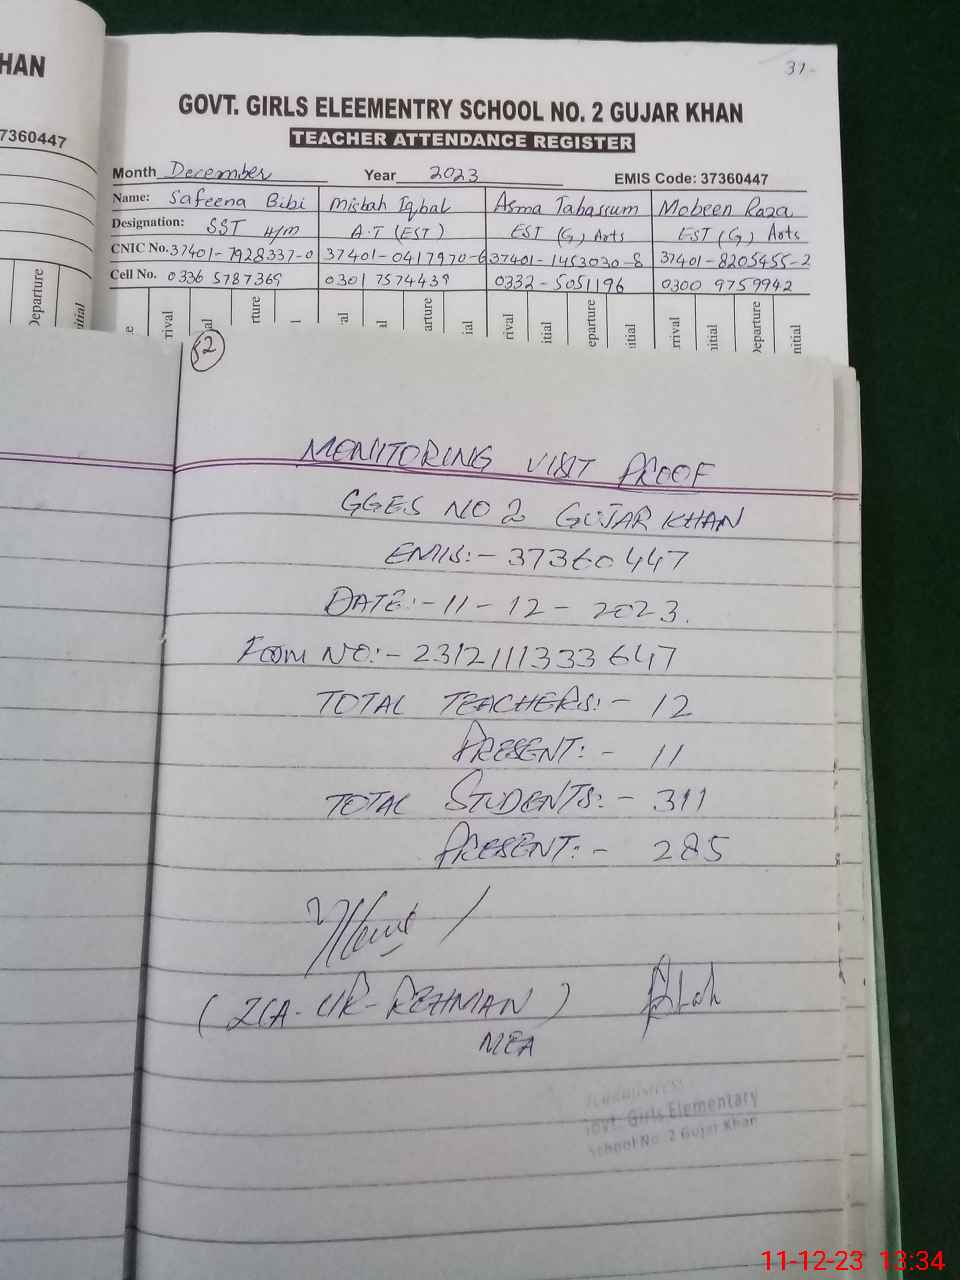 HAN
7360447
31-
GOVT. GIRLS ELEEMENTRY SCHOOL NO. 2 GUJAR KHAN
TEACHER ATTENDANCE REGISTER
Month December Year 2023 EMIS Code: 37360447
Name: Safeena Bibi Misbah Iqbal Asma Tabassum Mobeen Raza
Designation: SST H/M A.T (EST) EST (G) Arts EST (G) Arts
CNIC No. 37401-7928337-0 37401-0417970-6 37401-1453030-8 37401-8205455-2
Cell No. 0336 5787369 0301 7574439 0332-5051196 0300 9759942
Departure itial e rival al rture l al l arture ial rival itial eparture itial rrival nitial Departure nitial
52
MONITORING VISIT PROOF
GGES NO 2 GUJAR KHAN
EMIS:- 37360447
DATE:- 11-12-2023.
FORM NO:- 2312111333647
TOTAL TEACHERS:- 12
PRESENT:- 11
TOTAL STUDENTS:- 311
PRESENT:- 285
(ZIA-UR-REHMAN)
MEA
Govt. Girls Elementary
School No. 2 Gujar Khan
11-12-23 13:34